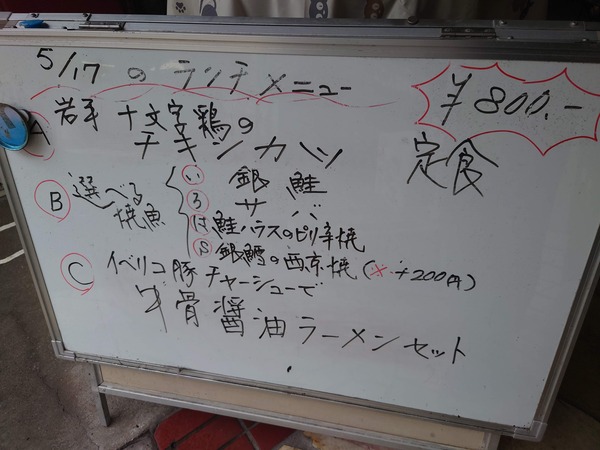 5/17 の ランチメニュー
¥800.-
定食
A 岩手 十文字鶏の
チキンカツ
B 選べる
焼魚
い 銀鮭
ろ サバ
は 鮭ハラスのピリ辛焼
銀鱈の西京焼(※+200円)
C イベリコ豚チャーシューで
牛骨醤油ラーメンセット